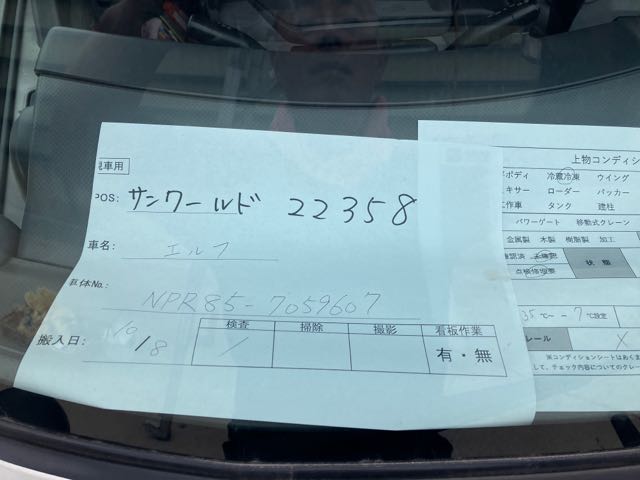 現車用
POS: サンワールド 22358
車名: エルフ
車体No.: NPR85-7059607
搬入日: 10/8
検査 掃除 撮影 看板作業
有・無
上物コンディシ
ボディ 冷蔵冷凍 ウイング
キサー ローダー パッカー
工作車 タンク 建柱
パワーゲート 移動式クレーン
金属製 木製 樹脂製 加工
確認済 未確認 状態
点検修復要
35℃~-7℃設定
レール X
※コンディションシートはあくま
して、チェック内容についてのクレー